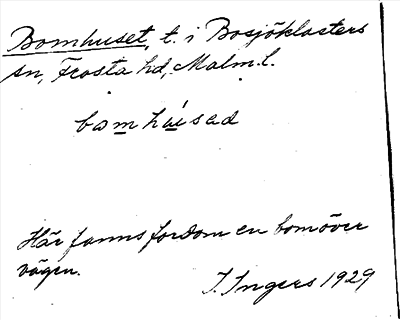 Bomhuset, t. i Bosjöklosters
sn, Frosta hd, Malm. l.
bomhúsad
Här fanns fordom en bom över
vägen.
I. Ingers 1929